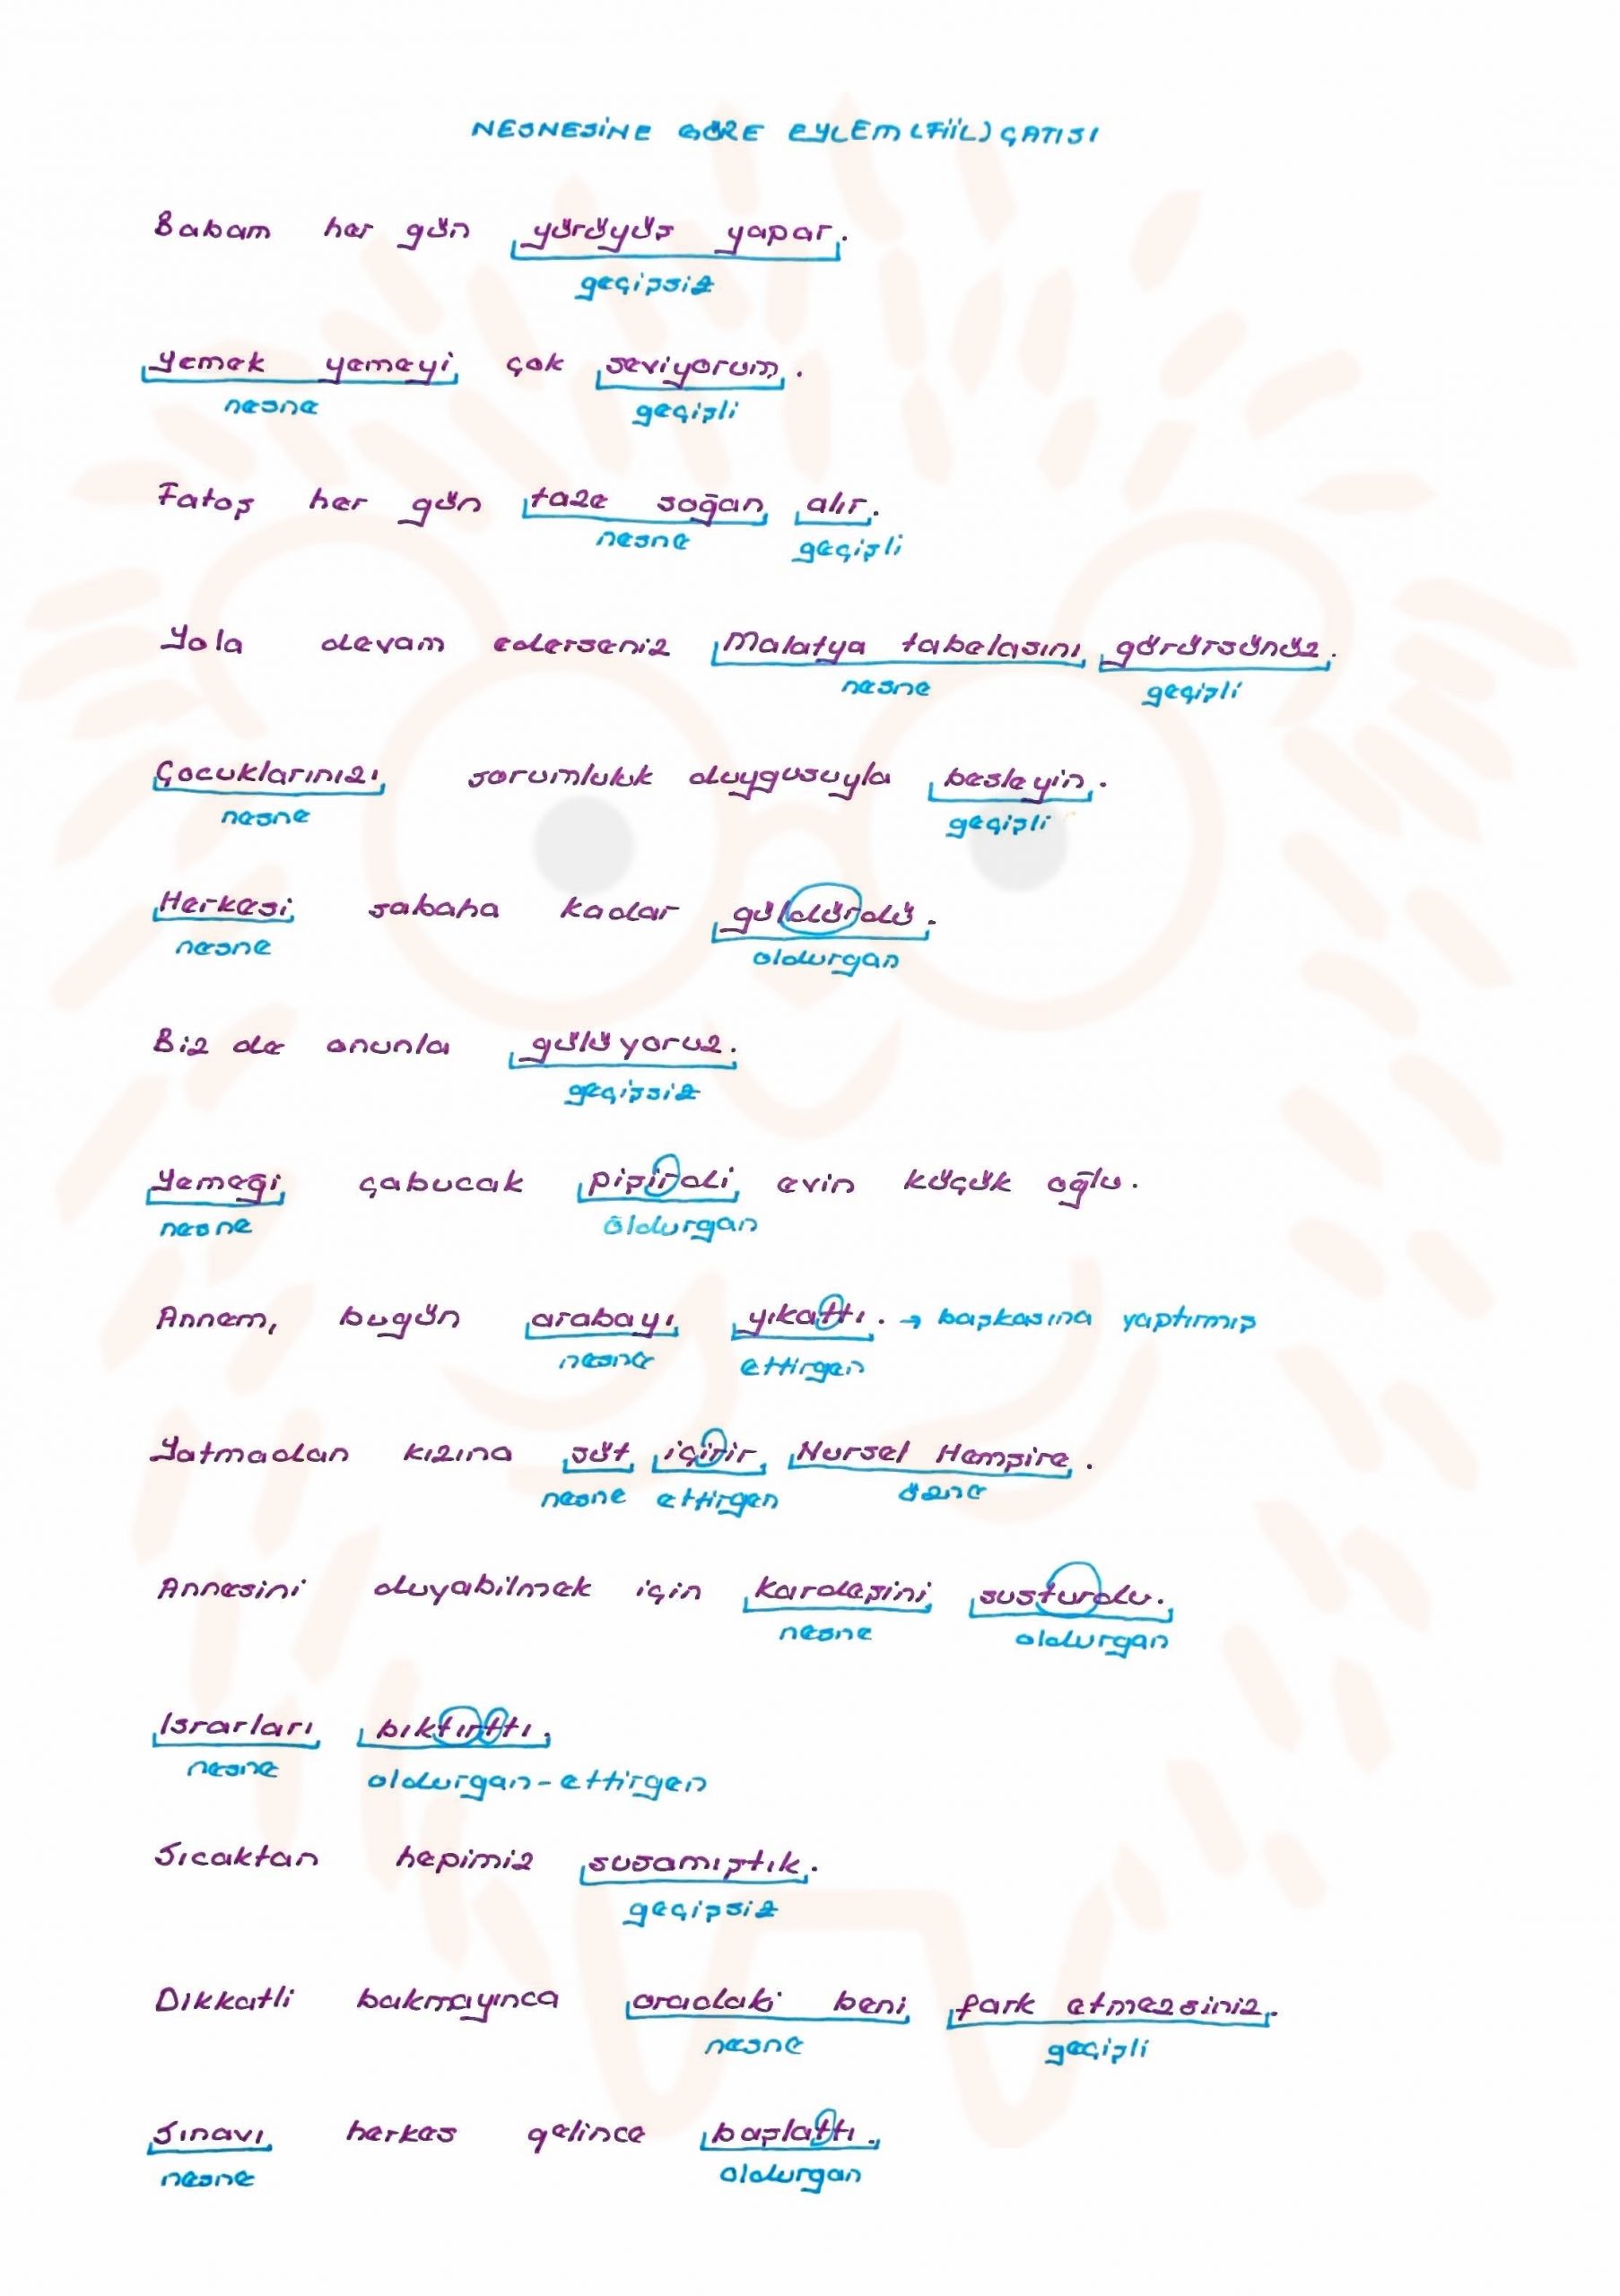 NESNESİNE GÖRE EYLEM (FİİL) ÇATISI
Babam her gün yürüyüş yapar.
geçişsiz
Yemek yemeyi çok seviyorum.
nesne geçişli
Fatoş her gün taze soğan alır.
nesne geçişli
Yola devam ederseniz Malatya tabelasını görürsünüz.
nesne geçişli
Çocuklarınızı sorumluluk duygusuyla besleyin.
nesne geçişli
Herkesi sabaha kadar güldürdü.
nesne oldurgan
Biz de onunla gülüyoruz.
geçişsiz
Yemeği çabucak pişirdi evin küçük oğlu.
nesne oldurgan
Annem, bugün arabayı yıkattı. → başkasına yaptırmış
nesne ettirgen
Yatmadan kızına süt içirir Nursel Hemşire.
nesne ettirgen özne
Annesini duyabilmek için kardeşini susturdu.
nesne oldurgan
Israrları bıktırttı.
nesne oldurgan-ettirgen
Sıcaktan hepimiz susamıştık.
geçişsiz
Dikkatli bakmayınca oradaki beni fark etmezsiniz.
nesne geçişli
Sınavı herkes gelince başlattı.
nesne oldurgan